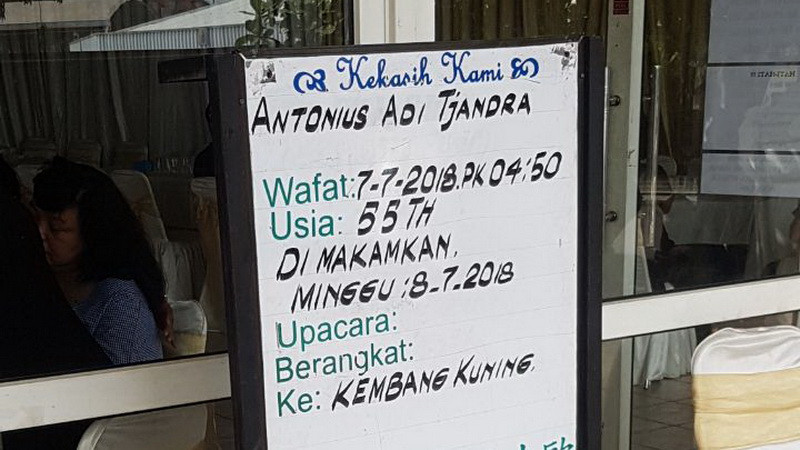 Kekasih Kami
ANTONIUS ADI TJANDRA
Wafat: 7-7-2018.PK 04:50
Usia: 55 TH
DI MAKAMKAN.
MINGGU : 8-7-2018
Upacara:
Berangkat:
Ke: KEMBANG KUNING.